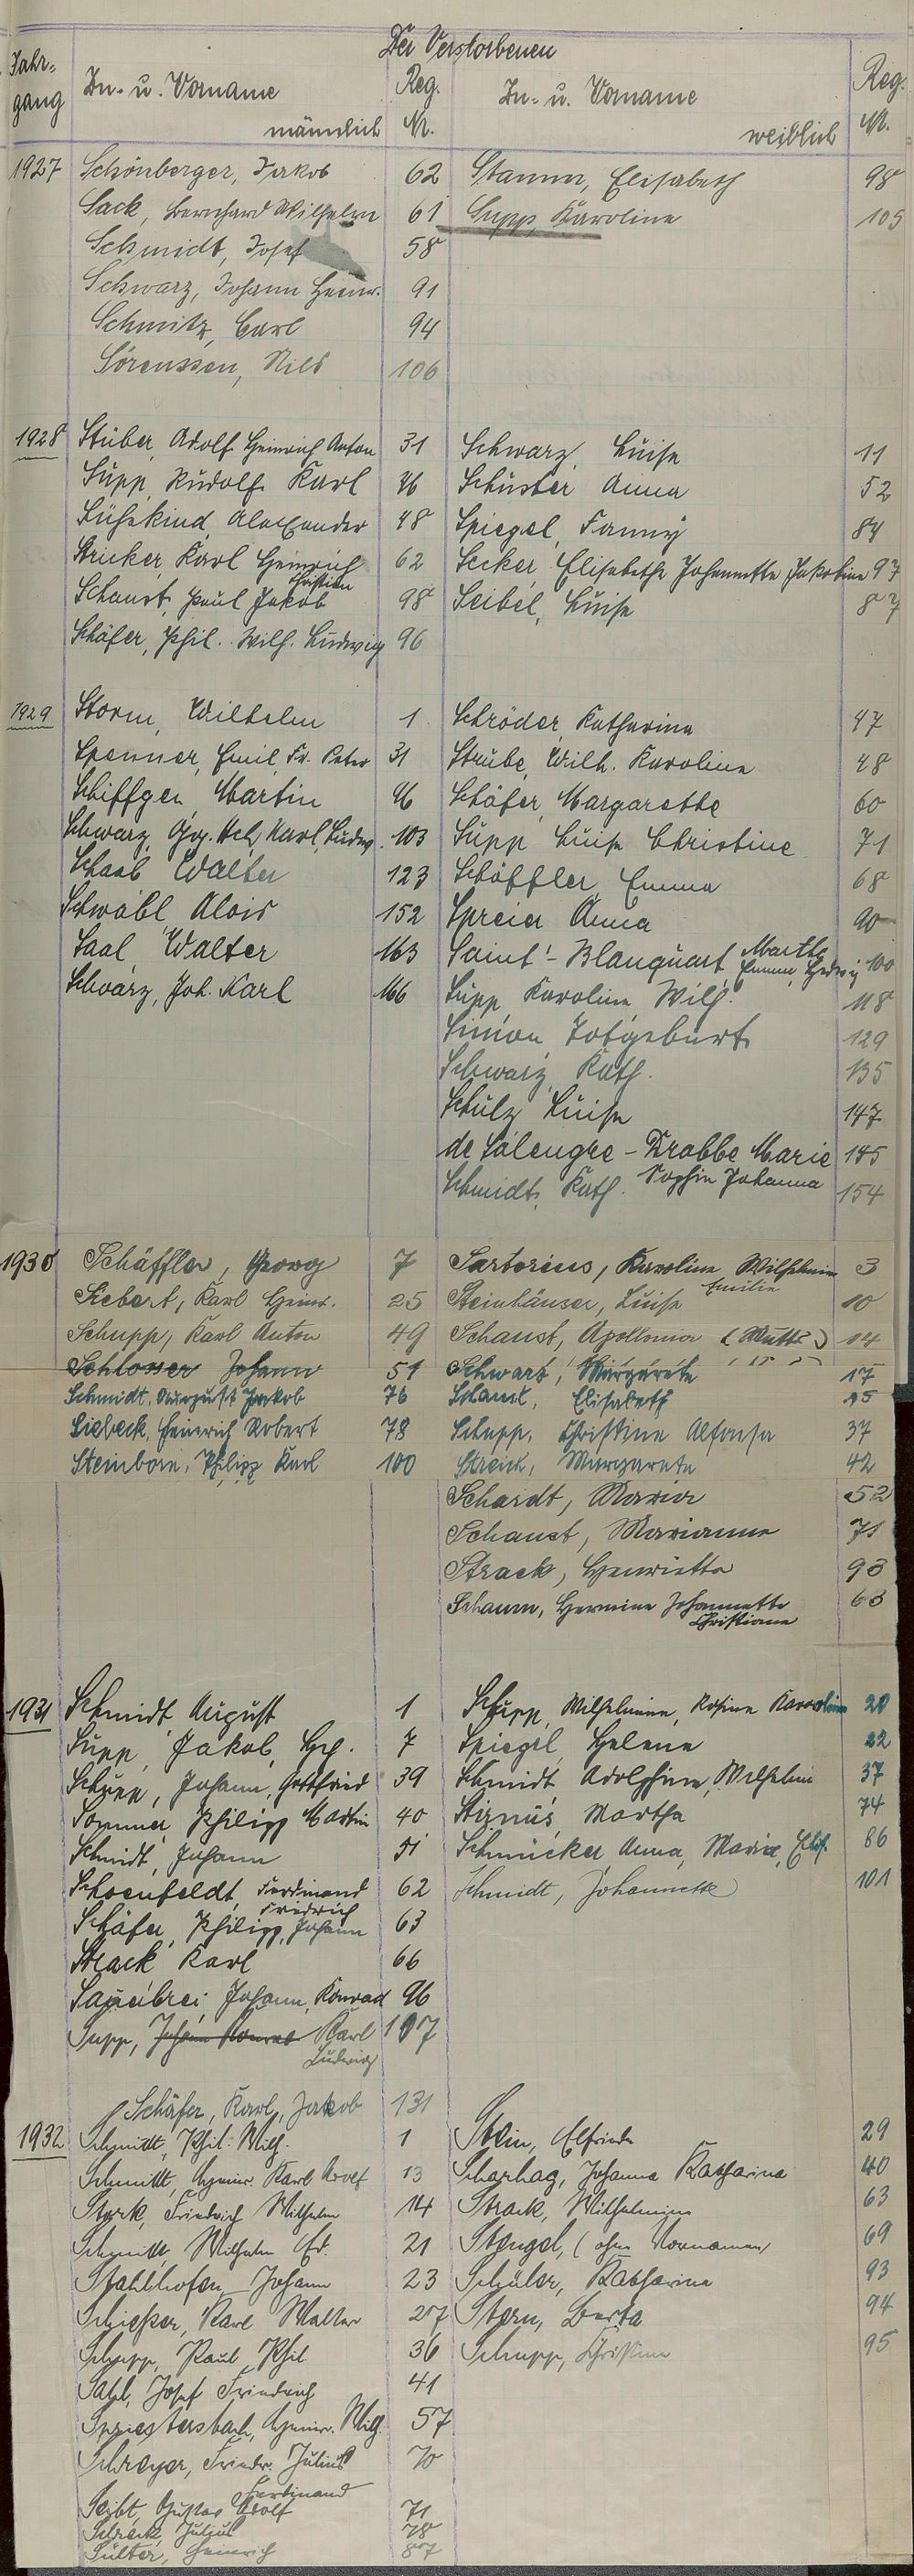 Der Verstorbenen
Jahrgang Zu- u. Vorname männlich Reg. Nr. Zu- u. Vorname weiblich Reg. Nr.
1927 Schönberger, Jakob 62 Stamm, Elisabeth 98
Sack, Bernhard Wilhelm 61 Supp, Karoline 105
Schmidt, Josef 58
Schwarz, Johann Heinr. 91
Schmitz, Carl 94
Sörenssen, Nils 106
1928 Stüber, Adolf Heinrich Anton 31 Schwarz, Luise 11
Supp, Rudolf Karl 46 Schuster Anna 52
Süßkind, Alexander 48 Spiegel, Fanny 84
Stricker, Karl Heinrich Christian 62 Secker, Elisabethe Johannette Jakobine 97
Schaust, Paul Jakob 98 Seibel, Luise 87
Schäfer, Phil. Wilh. Ludwig 96
1929 Storm, Wilhelm 1 Schröder, Katharina 47
Spenner, Emil, Fr. Peter 31 Strube, Wilh. Karoline 48
Schiffgen Martin 46 Schäfer, Margarethe 60
Schwarz, Gg. Hch. Karl, Ludw. 103 Supp Luise Christine 71
Schaab Walter 123 Schöffler, Emma 68
Schwäbl Alois 152 Spreier Anna 90
Saal, Walter 163 Saint-Blanquart Martha Emma Hedwig 100
Schwarz, Joh. Karl 166 Supp Karoline Wilh. 118
Simon Totgeburt 129
Schwarz Kath. 135
Schulz Luise 147
de Salengre-Drabbe Marie 145
Schmidt, Kath. Sophie Johanna 154
1930 Schäffler, Georg 7 Sartorius, Karoline Wilhelmine Emilie 3
Siebert, Karl Heinr. 25 Steinhäuser, Luise 10
Schupp, Karl Anton 49 Schaust, Apollonia 14
Schlosser Johann 51 Schwarz, Margarete 17
Schmidt, August Jakob 76 Elisabeth
Siebeck, Heinrich Robert 78 Schupp, Christine 37
Steinborn, Philipp Karl 100 Margarete 42
Schardt, Maria 52
Schaust, Marianne 71
Strack, Henriette 93
Schaum, Hermine Johannette Christiane 63
1931 Schmidt August 1 Schupp, Wilhelmine, Rosine Karoline 20
Supp, Jakob, Hch. 7 Spiegel Helene 22
Schupp, Johann, Gottfried 39 Schmidt Adolphine, Wilhelmine 37
Sommer, Philipp Martin 40 Martha 74
Schmidt, Johann 51 Schmücker Anna, Maria, Elis. 86
Schoenfeldt, Ferdinand Friedrich 62 Schmidt, Johannette 101
Schäfer, Philipp, Johann 63
Strack Karl 66
Johann, Konrad 96
Supp, Johann Konrad Karl Ludwig 107
Schäfer, Karl, Jakob 131
1932 Schmidt, Phil. Wilh. 1 Stein, Elfriede 29
Schmidt, Heinr. Karl Adolf 13 Scharhag, Johanna Katharina 40
Stark, Friedrich Wilhelm 14 Strack, Wilhelmine 63
Schmidt Wilhelm Ed. 21 Stengel, (ohne Vornamen) 69
Stahlhofen Johann 23 Schüler, Katharina 93
Schießer, Karl Walter 27 Stern, Berta 94
Schupp, Paul Phil. 36 Schupp, Christine 95
Sahl, Josef Friedrich 41
Spriestersbach, Heinr. Wilh. 57
Schreyer, Friedr. Julius 70
Seibt, Gustav Adolf Ferdinand 71
Julius 78
Sulter, Heinrich 87